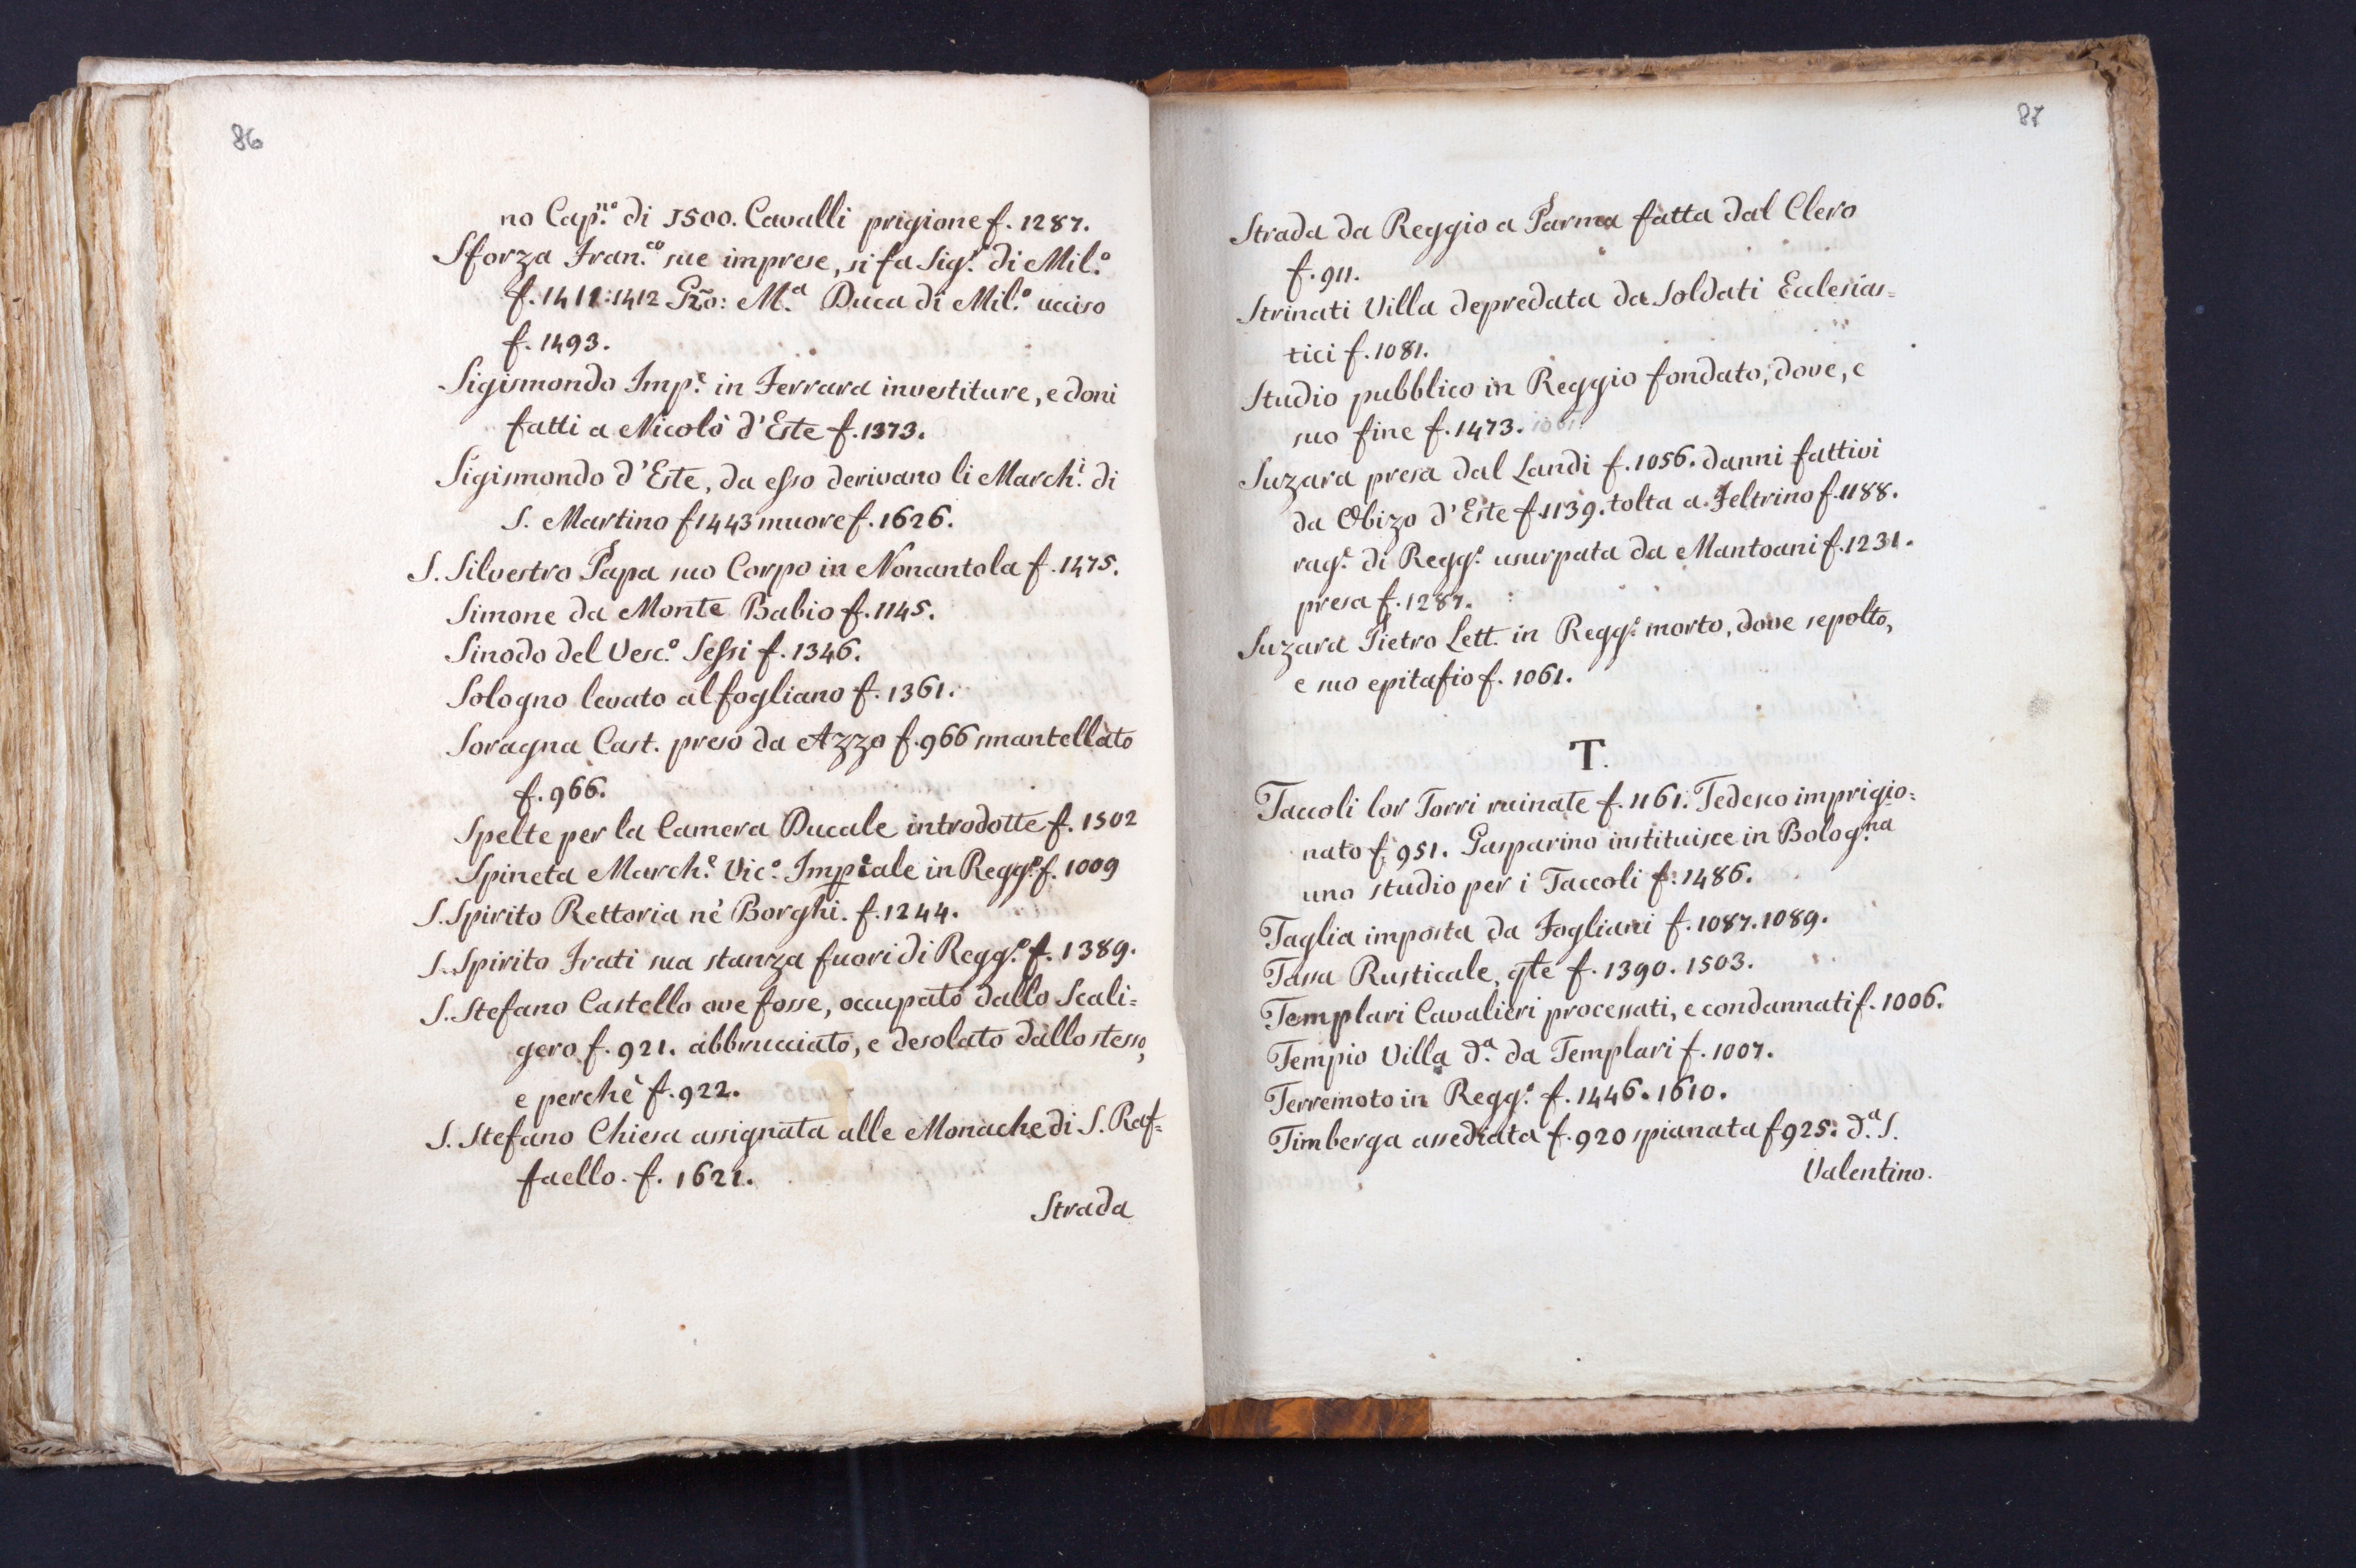 86
no Cap.no di 1500. Cavalli prigione f. 1287.
Sforza Fran.co sue imprese, si fa Sig.e di Mil.o
f. 1411:1412 Gio: M.a Duca di Mil.o ucciso
f. 1493.
Sigismondo Imp.e in Ferrara investiture, e doni
fatti a Nicolò d'Este f. 1373.
Sigismondo d'Este, da esso derivano li March.i di
S. Martino f 1443 muore f. 1626.
S. Silvestro Papa suo Corpo in Nonantola f. 1475.
Simone da Monte Babio f. 1145.
Sinodo del Vesc.o Sessi f. 1346.
Sologno levato al fogliano f. 1361.
Soragna Cast. preso da Azzo f. 966 smantellato
f. 966.
Spelte per la Camera Ducale introdotte f. 1502
Spineta March.e Vic.o Imp͞iale in Regg.o f. 1009
S. Spirito Rettoria nè Borghi. f. 1244.
S. Spirito Frati sua stanza fuori di Regg.o f. 1389.
S. Stefano Castello ove fosse, occupato dallo Scali=
gero f. 921. abbrucciato, e desolato dallo stesso,
e perchè f. 922.
S. Stefano Chiesa assignata alle Monache di S. Raf=
faello. f. 1621.
Strada
87
Strada da Reggio a Parma fatta dal Clero
f. 911.
Strinati Villa depredata da Soldati Ecclesias=
tici f. 1081.
Studio pubblico in Reggio fondato, dove, e
suo fine f. 1473.
Suzara presa dal Landi f. 1056. danni fattivi
da Obizo d'Este f. 1139. tolta a Feltrino f. 1188.
rag.e di Regg.o usurpata da Mantoani f. 1231.
presa f. 1287.
Suzara Pietro Lett. in Regg.o morto, dove sepolto,
e suo epitafio f. 1061.
T.
Taccoli lor Torri ruinate f. 1161. Tedesco imprigio=
nato f. 951. Gasparino instituisce in Bolog.na
uno studio per i Taccoli f. 1486.
Taglia imposta da Fogliani f. 1087. 1089.
Tassa Rusticale, qte f. 1390. 1503.
Templari Cavalieri processati, e condannati f. 1006.
Tempio Villa d.a da Templari f. 1007.
Terremoto in Regg.o f. 1446. 1610.
Timberga assediata f. 920 spianata f 925. d.a S.
Valentino.